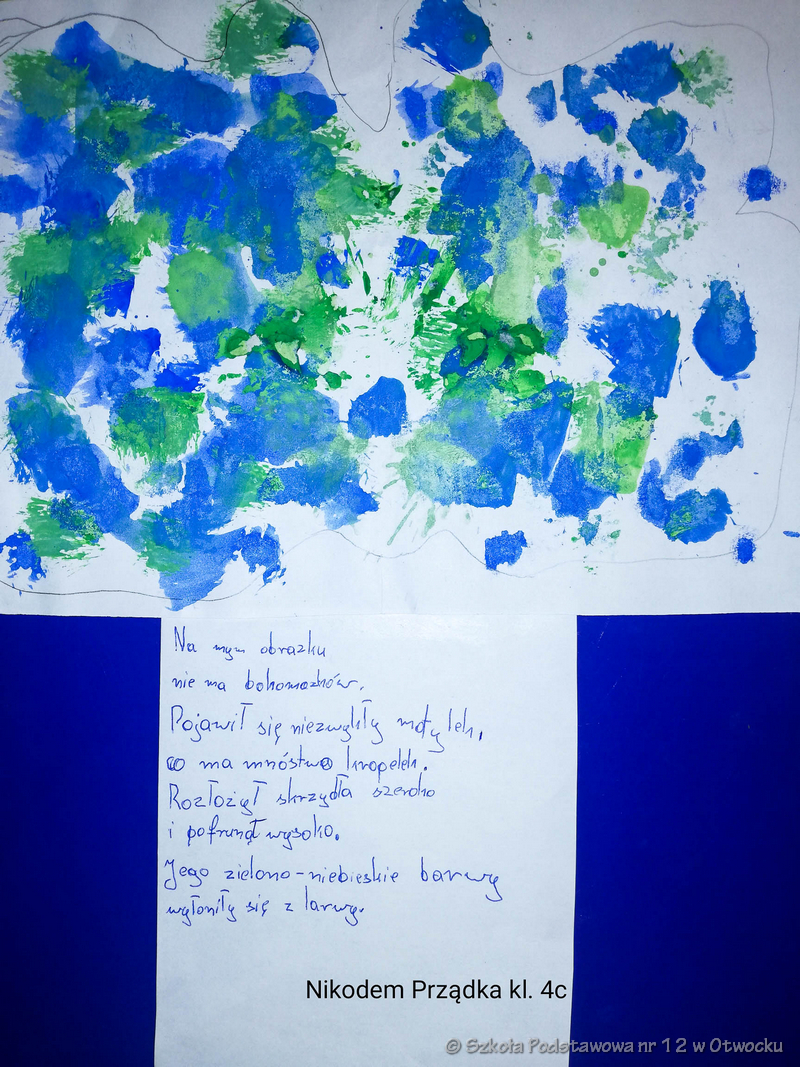 Na mym obrazku
nie ma bohomazków.
Pojawił się niezwykły motylek,
co ma mnóstwo kropelek.
Rozłożył skrzydła szeroko
i pofrunął wysoko.
Jego zielono-niebieskie barwy
wyłoniły się z larwy.
Nikodem Prządka kl. 4c
© Szkoła Podstawowa nr 12 w Otwocku